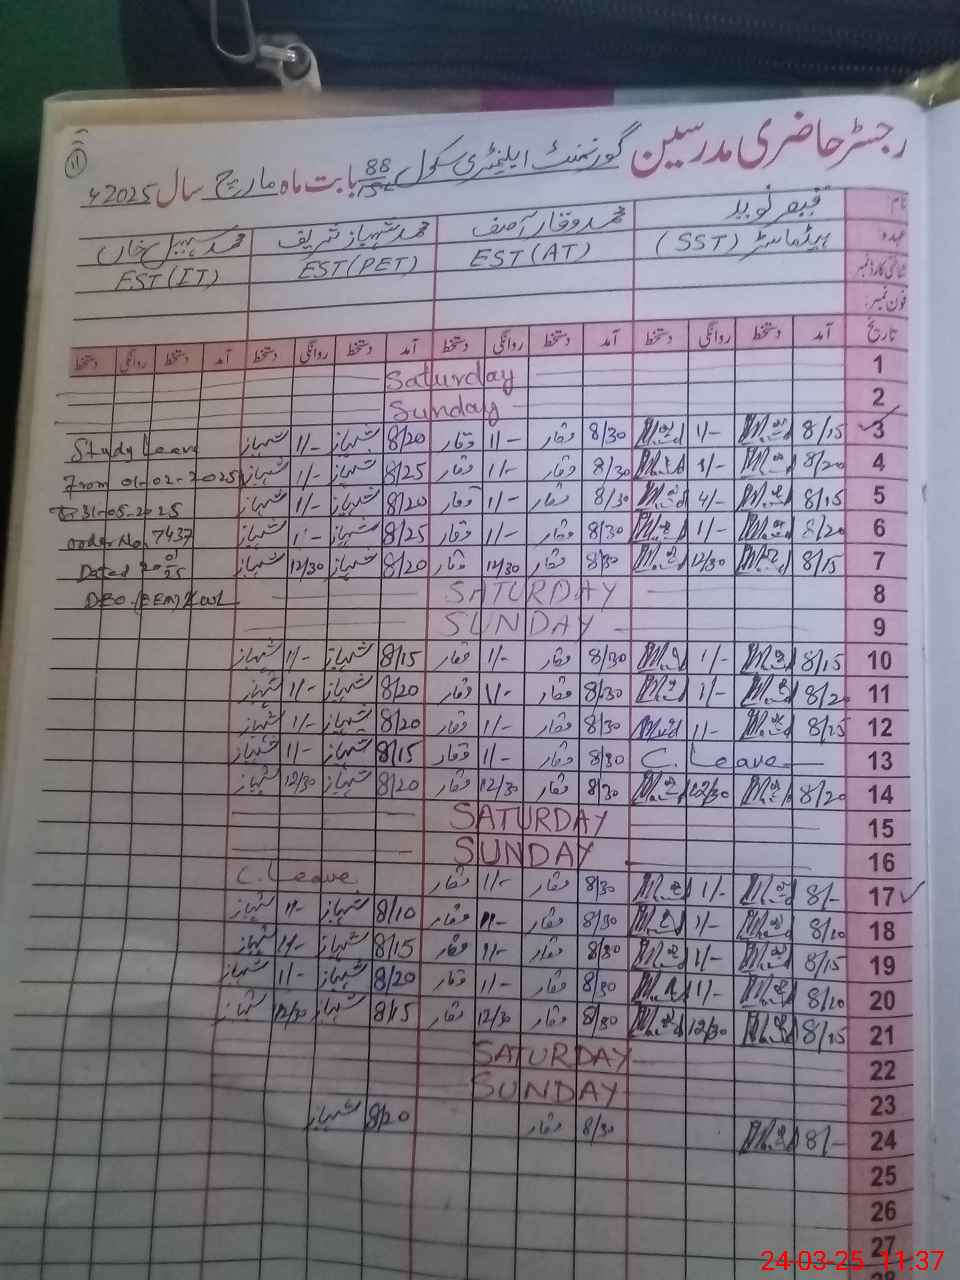 رجسٹر حاضری مدرسین گورنمنٹ ایلیمنٹری سکول 88/15 بابت ماہ مارچ سال 2025ء
نام: قیصر نوید محمد وقار آصف محمد شہباز شریف محمد سہیل خاں
عہدہ: ہیڈماسٹر (SST) EST (AT) EST (PET) EST (IT)
شناختی کارڈ نمبر
فون نمبر:
تاریخ آمد دستخط روانگی دستخط آمد دستخط روانگی دستخط آمد دستخط روانگی دستخط آمد دستخط روانگی دستخط
1 Saturday
2 Sunday
3 8/15 1/- 8/30 وقار 1/- وقار 8/20 شہباز 1/- شہباز Study Leave
4 8/20 1/- 8/30 وقار 1/- وقار 8/25 شہباز 1/- شہباز From 01-02-2025
5 8/15 1/- 8/30 وقار 1/- وقار 8/20 شہباز 1/- شہباز To 31-05-2025
6 8/20 1/- 8/30 وقار 1/- وقار 8/25 شہباز 1/- شہباز order No. 7437
7 8/15 12/30 8/30 وقار 12/30 وقار 8/20 شہباز 12/30 شہباز Dated
8 SATURDAY DEO
9 SUNDAY
10 8/15 1/- 8/30 وقار 1/- وقار 8/15 شہباز 1/- شہباز
11 8/20 1/- 8/30 وقار 1/- وقار 8/20 شہباز 1/- شہباز
12 8/25 1/- 8/30 وقار 1/- وقار 8/20 شہباز 1/- شہباز
13 C. Leave 8/30 وقار 1/- وقار 8/15 شہباز 1/- شہباز
14 8/20 12/30 8/30 وقار 12/30 وقار 8/20 شہباز 12/30 شہباز
15 SATURDAY
16 SUNDAY
17 8/- 1/- 8/30 وقار 1/- وقار C. Leave
18 8/10 1/- 8/30 وقار 1/- وقار 8/10 شہباز 1/- شہباز
19 8/15 1/- 8/30 وقار 1/- وقار 8/15 شہباز 1/- شہباز
20 8/10 1/- 8/30 وقار 1/- وقار 8/20 شہباز 1/- شہباز
21 8/15 12/30 8/30 وقار 12/30 وقار 8/15 شہباز 12/30 شہباز
22 SATURDAY
23 SUNDAY
24 8/- 8/30 وقار 8/20 شہباز
25
26
27
24-03-25 11:37